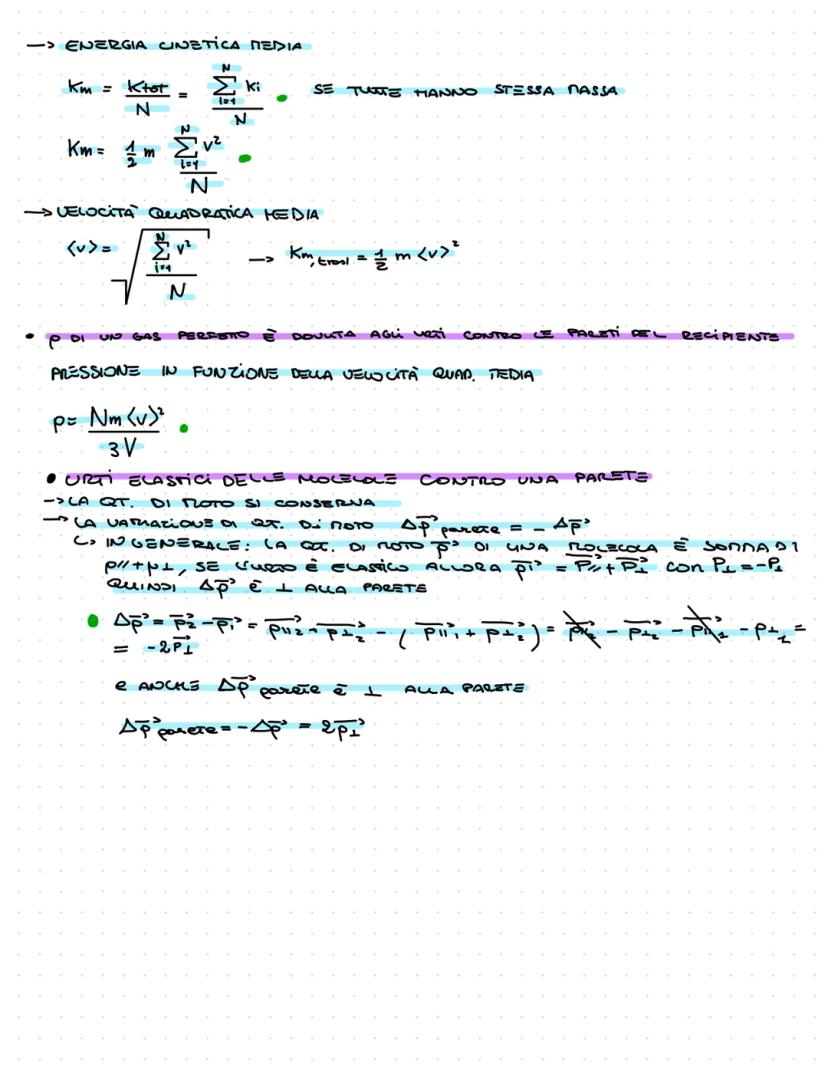 → ENERGIA CINETICA MEDIA
Km = Ktot/N = Σ(i=1 → N) ki / N SE TUTTE HANNO STESSA MASSA
Km = 1/2 m Σ(i=1 → N) v² / N
→ VELOCITÀ QUADRATICA MEDIA
<v> = √(Σ(i=1 → N) v² / N) → Km,trasl = 1/2 m <v>²
• p DI UN GAS PERFETTO È DOVUTA AGLI URTI CONTRO LE PARETI DEL RECIPIENTE
PRESSIONE IN FUNZIONE DELLA VELOCITÀ QUAD. MEDIA
p = Nm<v>² / 3V
• URTI ELASTICI DELLE MOLECOLE CONTRO UNA PARETE
→ LA QT. DI MOTO SI CONSERVA
→ LA VARIAZIONE DI QT. DI MOTO Δp⃗ parete = - Δp⃗
↳ IN GENERALE: LA QT. DI MOTO p⃗ DI UNA MOLECOLA È SOMMA DI
p// + p⊥, SE L'URTO È ELASTICO ALLORA p⃗' = p⃗// + p⃗⊥ CON P⊥ = -P⊥
QUINDI Δp⃗ È ⊥ ALLA PARETE
Δp⃗ = p⃗₂ - p⃗₁ = p⃗||₂ - p⃗⊥₂ - (p⃗||₁ + p⃗⊥₂) = p⃗||₂ - p⃗⊥₂ - p⃗||₁ - p⊥₁ =
= -2p⃗⊥
e ANCHE Δp⃗ parete è ⊥ ALLA PARETE
Δp⃗ parete = - Δp⃗ = 2p⃗⊥